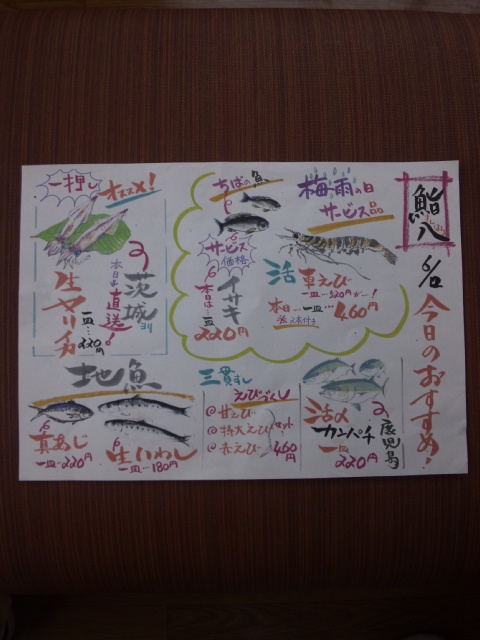 鮨八
今日のおすすめ!
梅雨の日
サービス品
活
車えび
一皿…520円が…!
本日…一皿…460円
ちばの魚
サービス
価格
イサキ
本日は…一皿
220円
一押し
オススメ!
茨城
ヨリ
本日も直送!
生ヤリイカ
一皿…220円
活〆
カンパチ
鹿児島
一皿
220円
三貫すし
えびづくし
@甘えび
@特大えび
@赤えび
セットで
460円
地魚
真あじ
一皿…220円
生いわし
一皿…180円